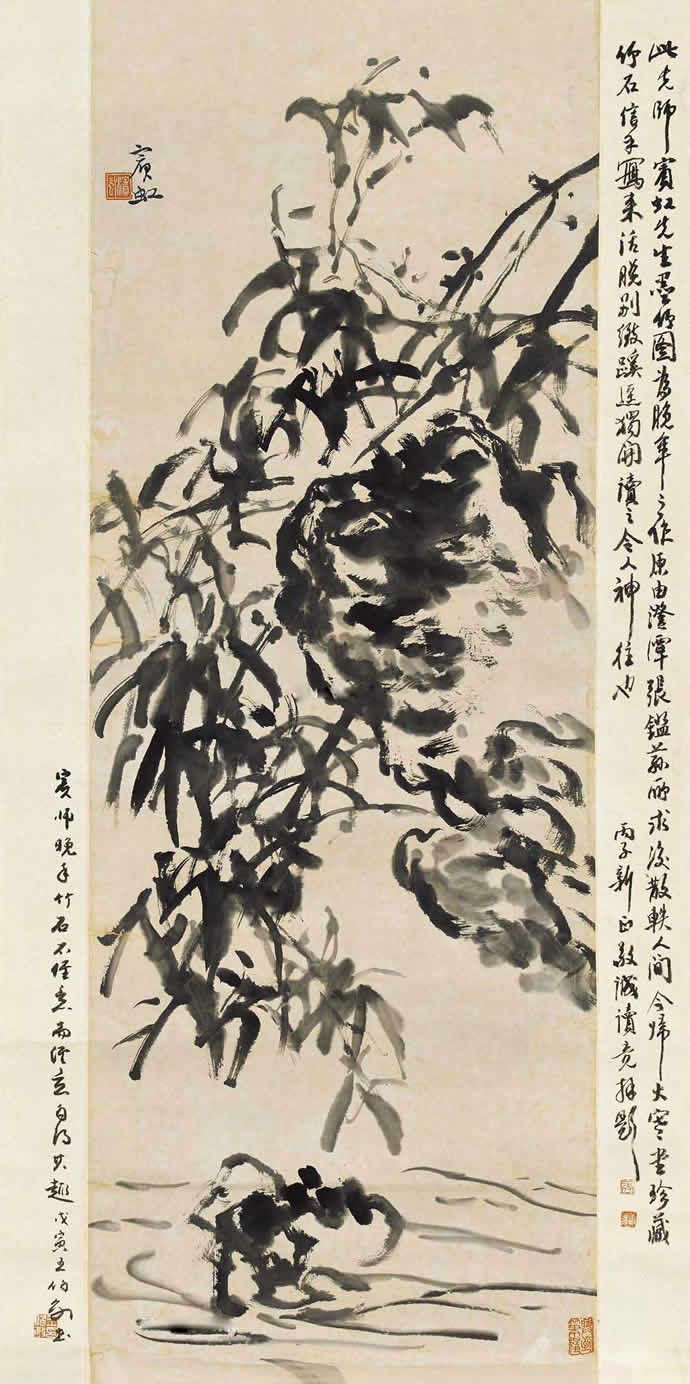 此先师賓虹先生墨竹圖為晚年之作原由澄潭張鑑蓀所求後散軼人間今歸大寒堂珍藏
竹石信手寫來活脱别緻蹊逕獨開讀之令人神往也
丙子新正敬誠讀竟拜題
賓虹
賓师晚年竹石不經意而經意自得其趣戊寅王伯敏書